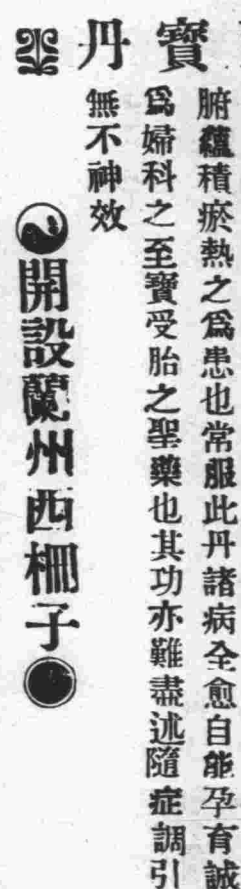 寶丹
腑蘊積瘀熱之爲患也常服此丹諸病全愈自能孕育誠
爲婦科之至寶受胎之聖藥也其功亦難盡述隨症調引
無不神效
開設蘭州西柵子